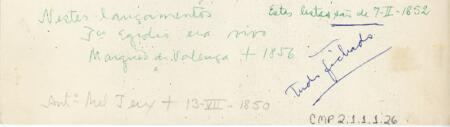 Nestes lançamentos
Jca Egidio era vivo
Marquês de Valença + 1856
Estes listas são de 7-II-1852
Tudo fichado
Antº Mel + 13-VIII-1850
CMP 2.1.1.1.26